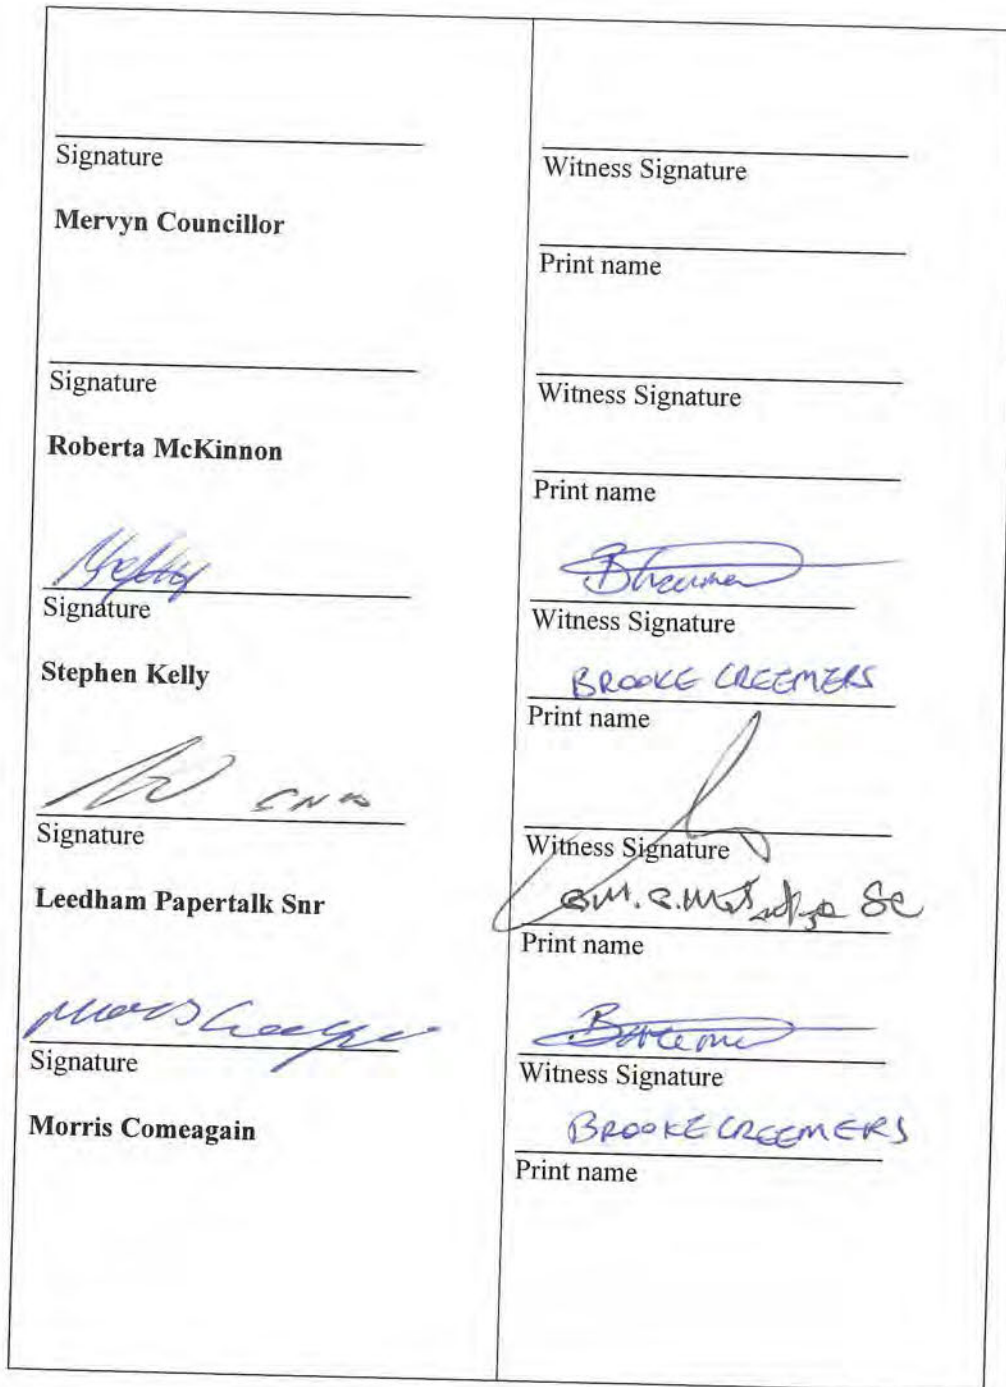 Signature
Mervyn Councillor
Signature
Roberta McKinnon
Signature
Stephen Kelly
Signature
Leedham Papertalk Snr
Signature
Morris Comeagain
Witness Signature
Print name
Witness Signature
Print name
Witness Signature
BROOKE CREEMERS
Print name
Witness Signature
Print name
Witness Signature
BROOKE CREEMERS
Print name